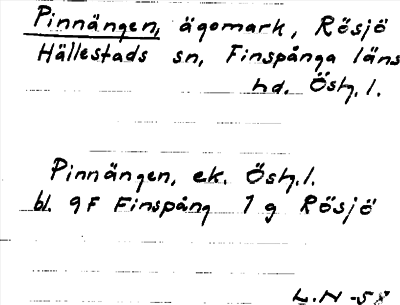 Pinnängen, ägomark, Rösjö
Hällestads sn, Finspånga läns
hd. Östg. l.
Pinnängen, ek. Östg. l.
bl. 9F Finspång 1 g Rösjö
L.N -58